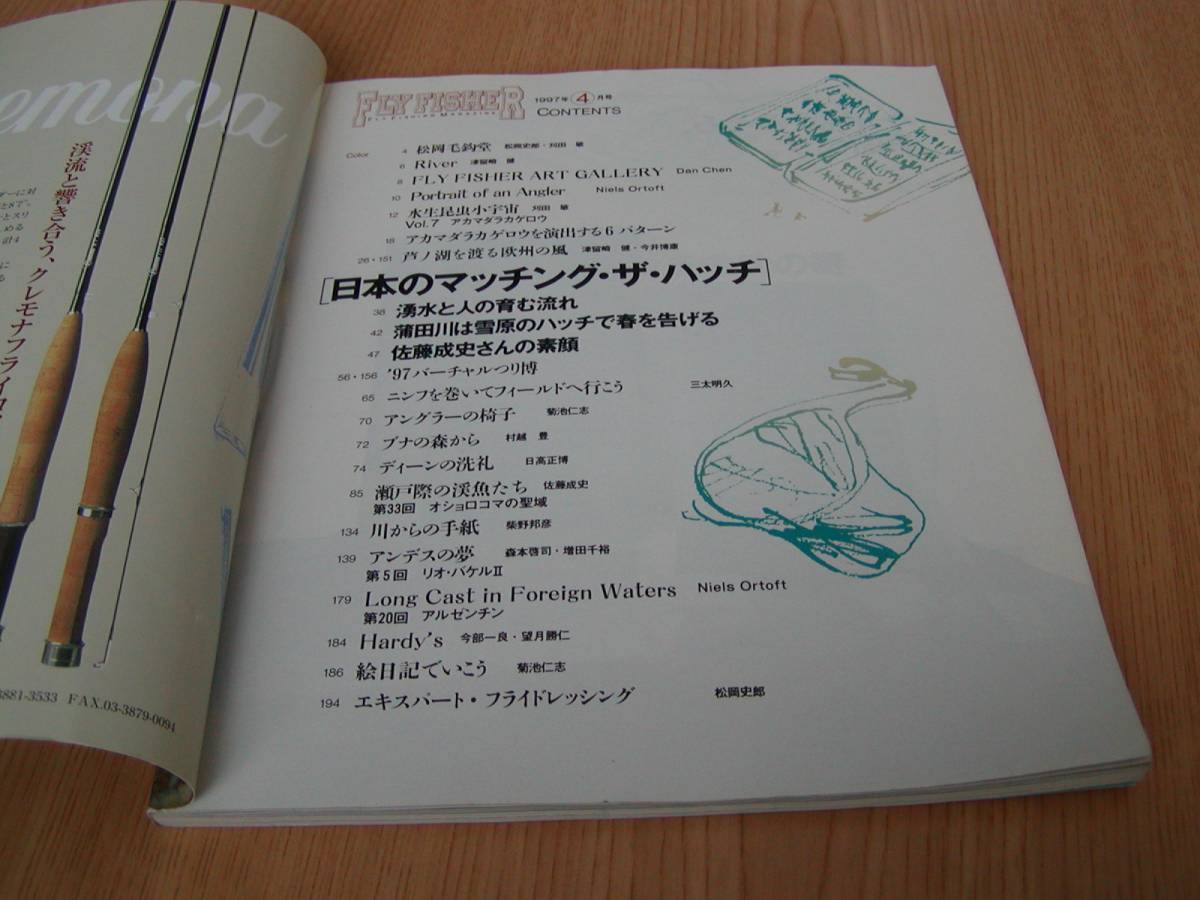 emona
渓流と響き合う、クレモナフライロッ
ダーに対
と8で。
ーとスリ
める
計4
に
る
3881-3533 FAX.03-3879-0094
FLY FISHER
FLY FISHING MAGAZINE
1997年4月号
CONTENTS
Color
4 松岡毛鈎堂 松岡史郎・刈田 敏
6 River 津留崎 健
8 FLY FISHER ART GALLERY Dan Chen
10 Portrait of an Angler Niels Ortoft
12 水生昆虫小宇宙 刈田 敏
Vol.7 アカマダラカゲロウ
18 アカマダラカゲロウを演出する6パターン
26・151 芦ノ湖を渡る欧州の風 津留崎 健・今井博康
[日本のマッチング・ザ・ハッチ]
38 湧水と人の育む流れ
42 蒲田川は雪原のハッチで春を告げる
47 佐藤成史さんの素顔
56・156 '97バーチャルつり博
65 ニンフを巻いてフィールドへ行こう 三太明久
70 アングラーの椅子 菊池仁志
72 ブナの森から 村越 豊
74 ディーンの洗礼 日高正博
85 瀬戸際の渓魚たち 佐藤成史
第33回 オショロコマの聖域
134 川からの手紙 柴野邦彦
139 アンデスの夢 森本啓司・増田千裕
第5回 リオ・バケルII
179 Long Cast in Foreign Waters Niels Ortoft
第20回 アルゼンチン
184 Hardy's 今部一良・望月勝仁
186 絵日記でいこう 菊池仁志
194 エキスパート・フライドレッシング 松岡史郎